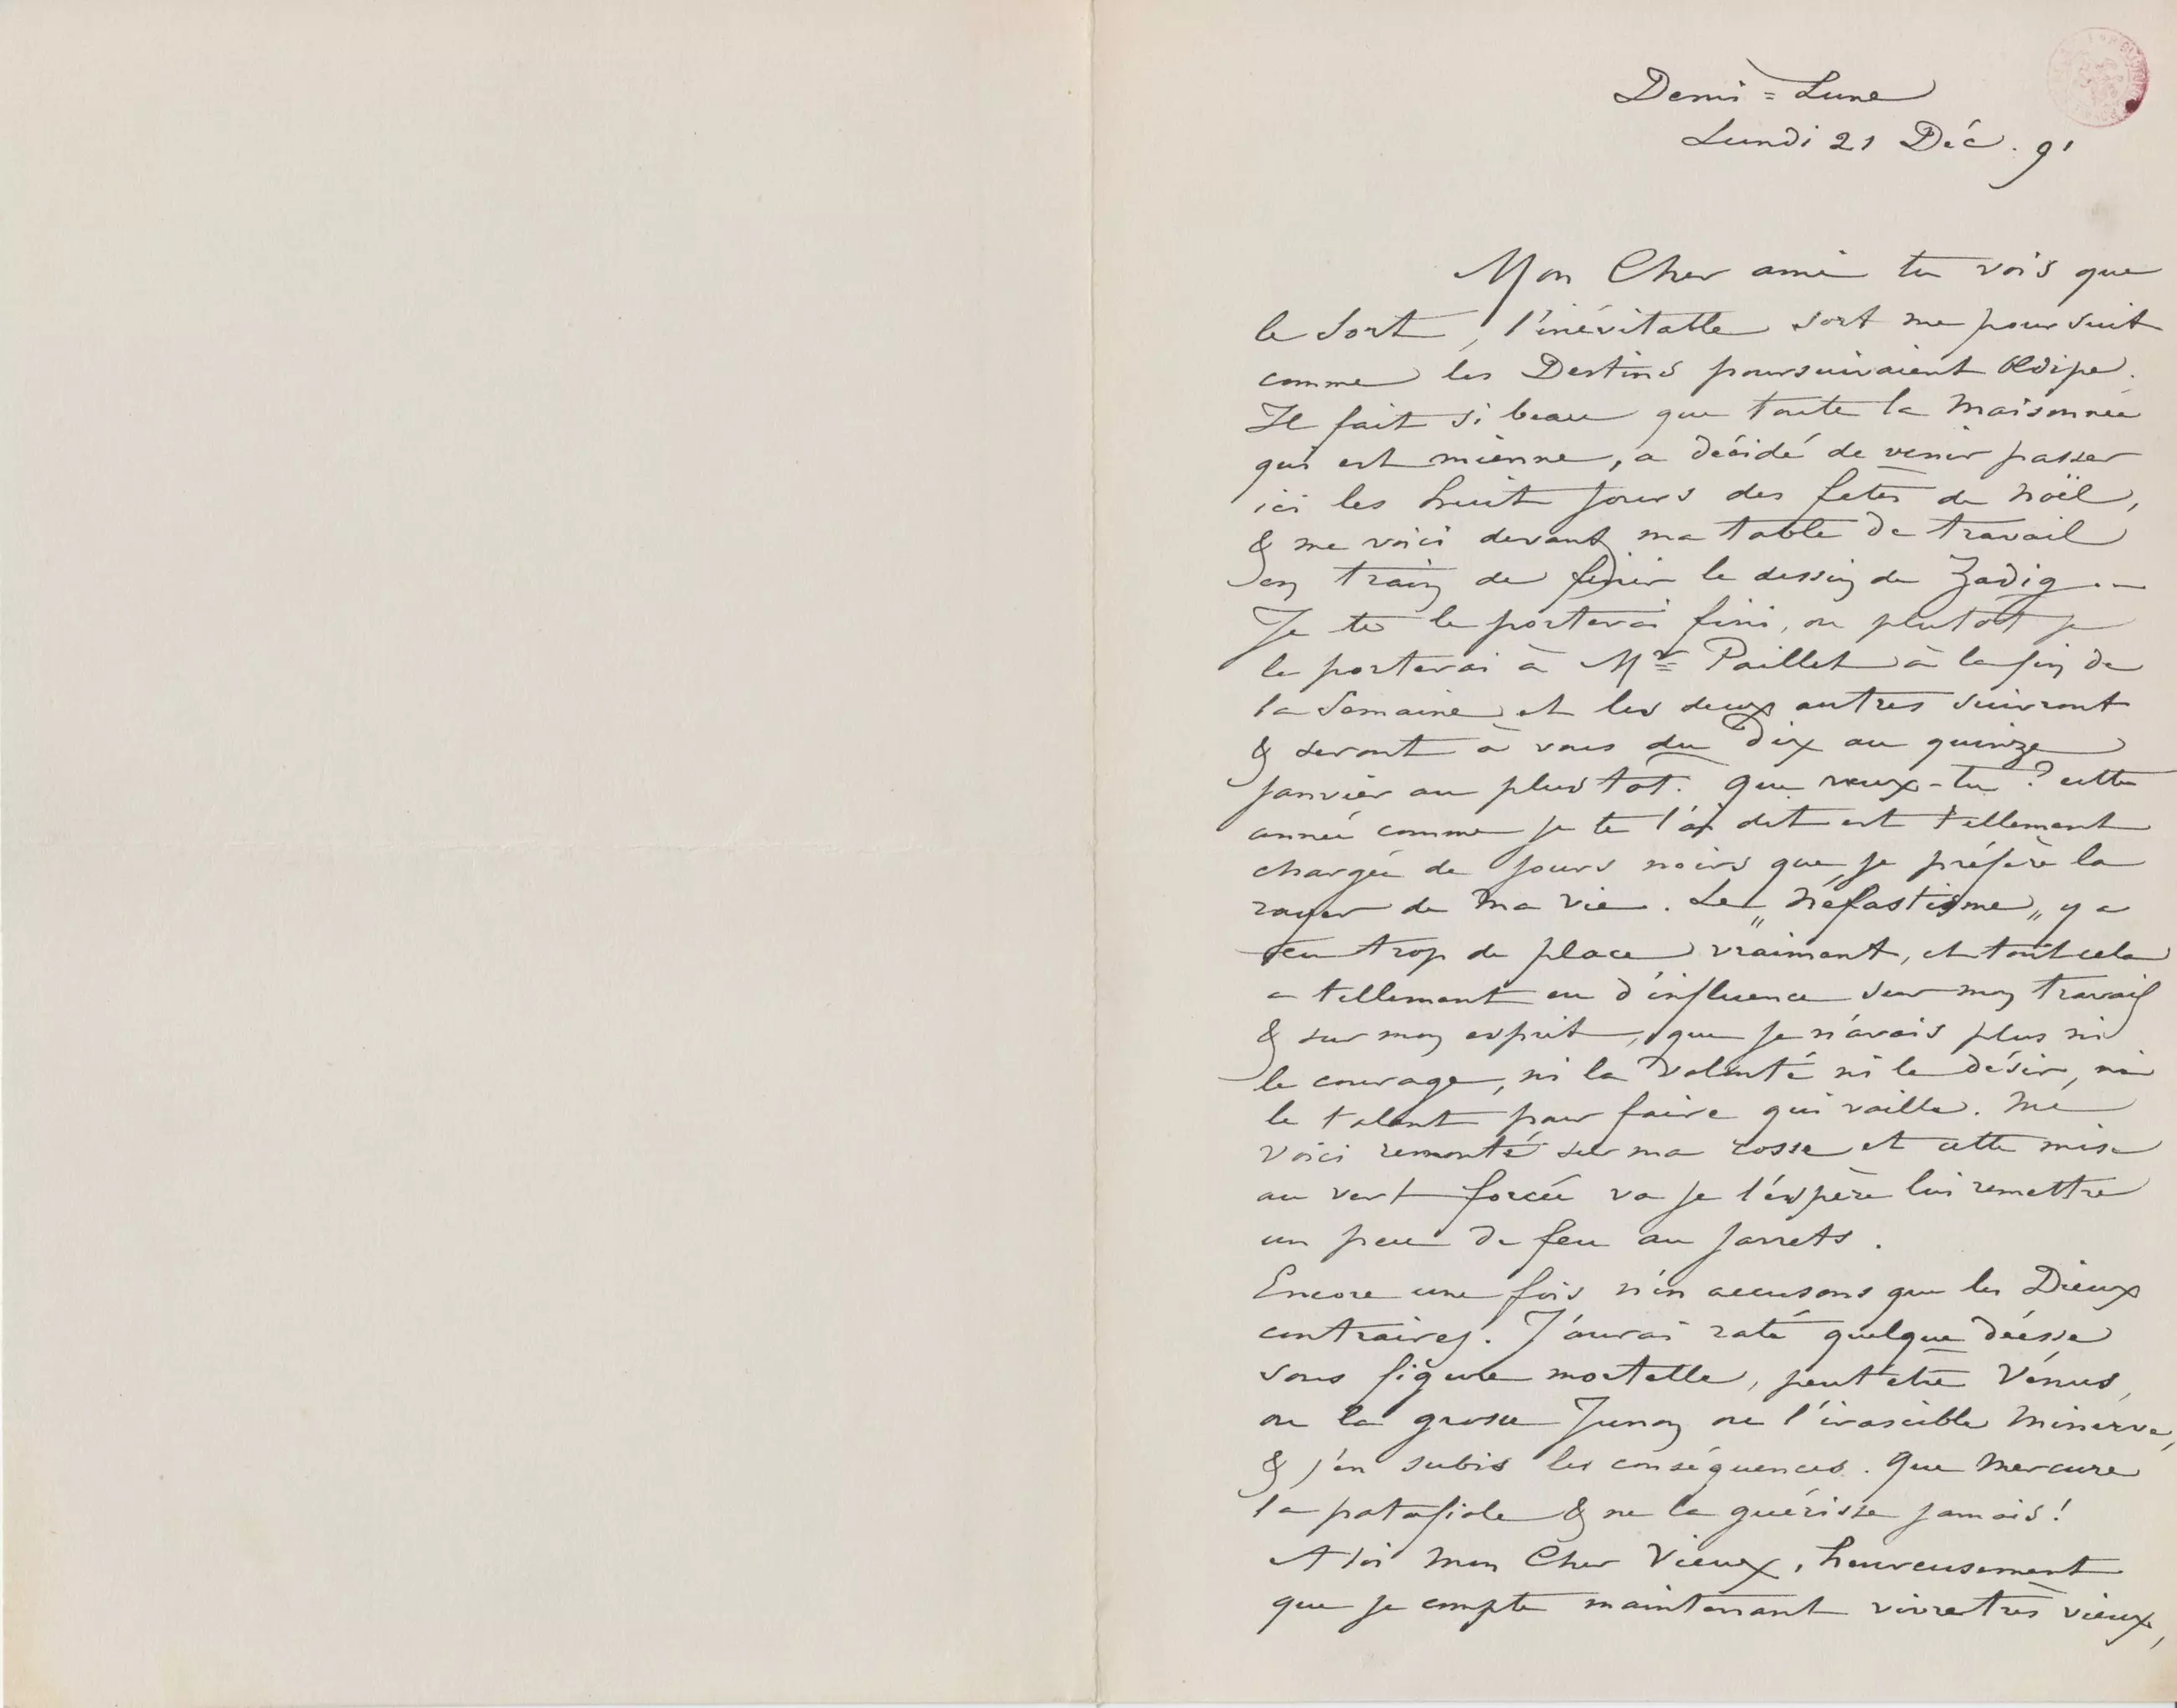 Demi=Lune
Lundi 21 Déc. 91
Mon Cher ami tu vois que
le Sort, l'inévitable sort me poursuit
comme les Destins poursuivaient Œdipe.
Il fait si beau que toute la Maisonnée
qui est mienne, a décidé de venir passer
ici les huit jours des fetes de Noël,
& me voici devant ma table de travail
en train de finir le dessin de Zadig ..
Je te le porterai fini, ou plutôt je
le porterai à Mr Paillet à la fin de
la Semaine et les deux autres suivront
& seront à vous du dix au quinze
janvier au plus tot. Que veux-tu ? cette
année comme je te l'ai dit est tellement
chargée de jours noirs que je préfère la
rayer de ma vie. Le „Néfastisme„ y a
eu trop de place vraiment, et tout cela
a tellement eu d'influence sur mon travail
& sur mon esprit, que je n'avais plus ni
le courage, ni la volonté ni le désir, ni
le talent pour faire qui vaille. Me
voici remonté sur ma rosse et cette mise
au vert forcée va je l'éspère lui remettre
un peu de feu au jarrets.
Encore une fois n'en accusons que les Dieux
contraires. J'aurai raté quelque déesse
sous figure mortelle, peut etre Vénus,
ou la grosse Junon ou l'irascible Minerve,
& j'en subis les conséquences. Que Mercure
la patafiole & ne la guérisse jamais !
A toi mon Cher Vieux, heureusement
que je compte maintenant vivre très vieux,